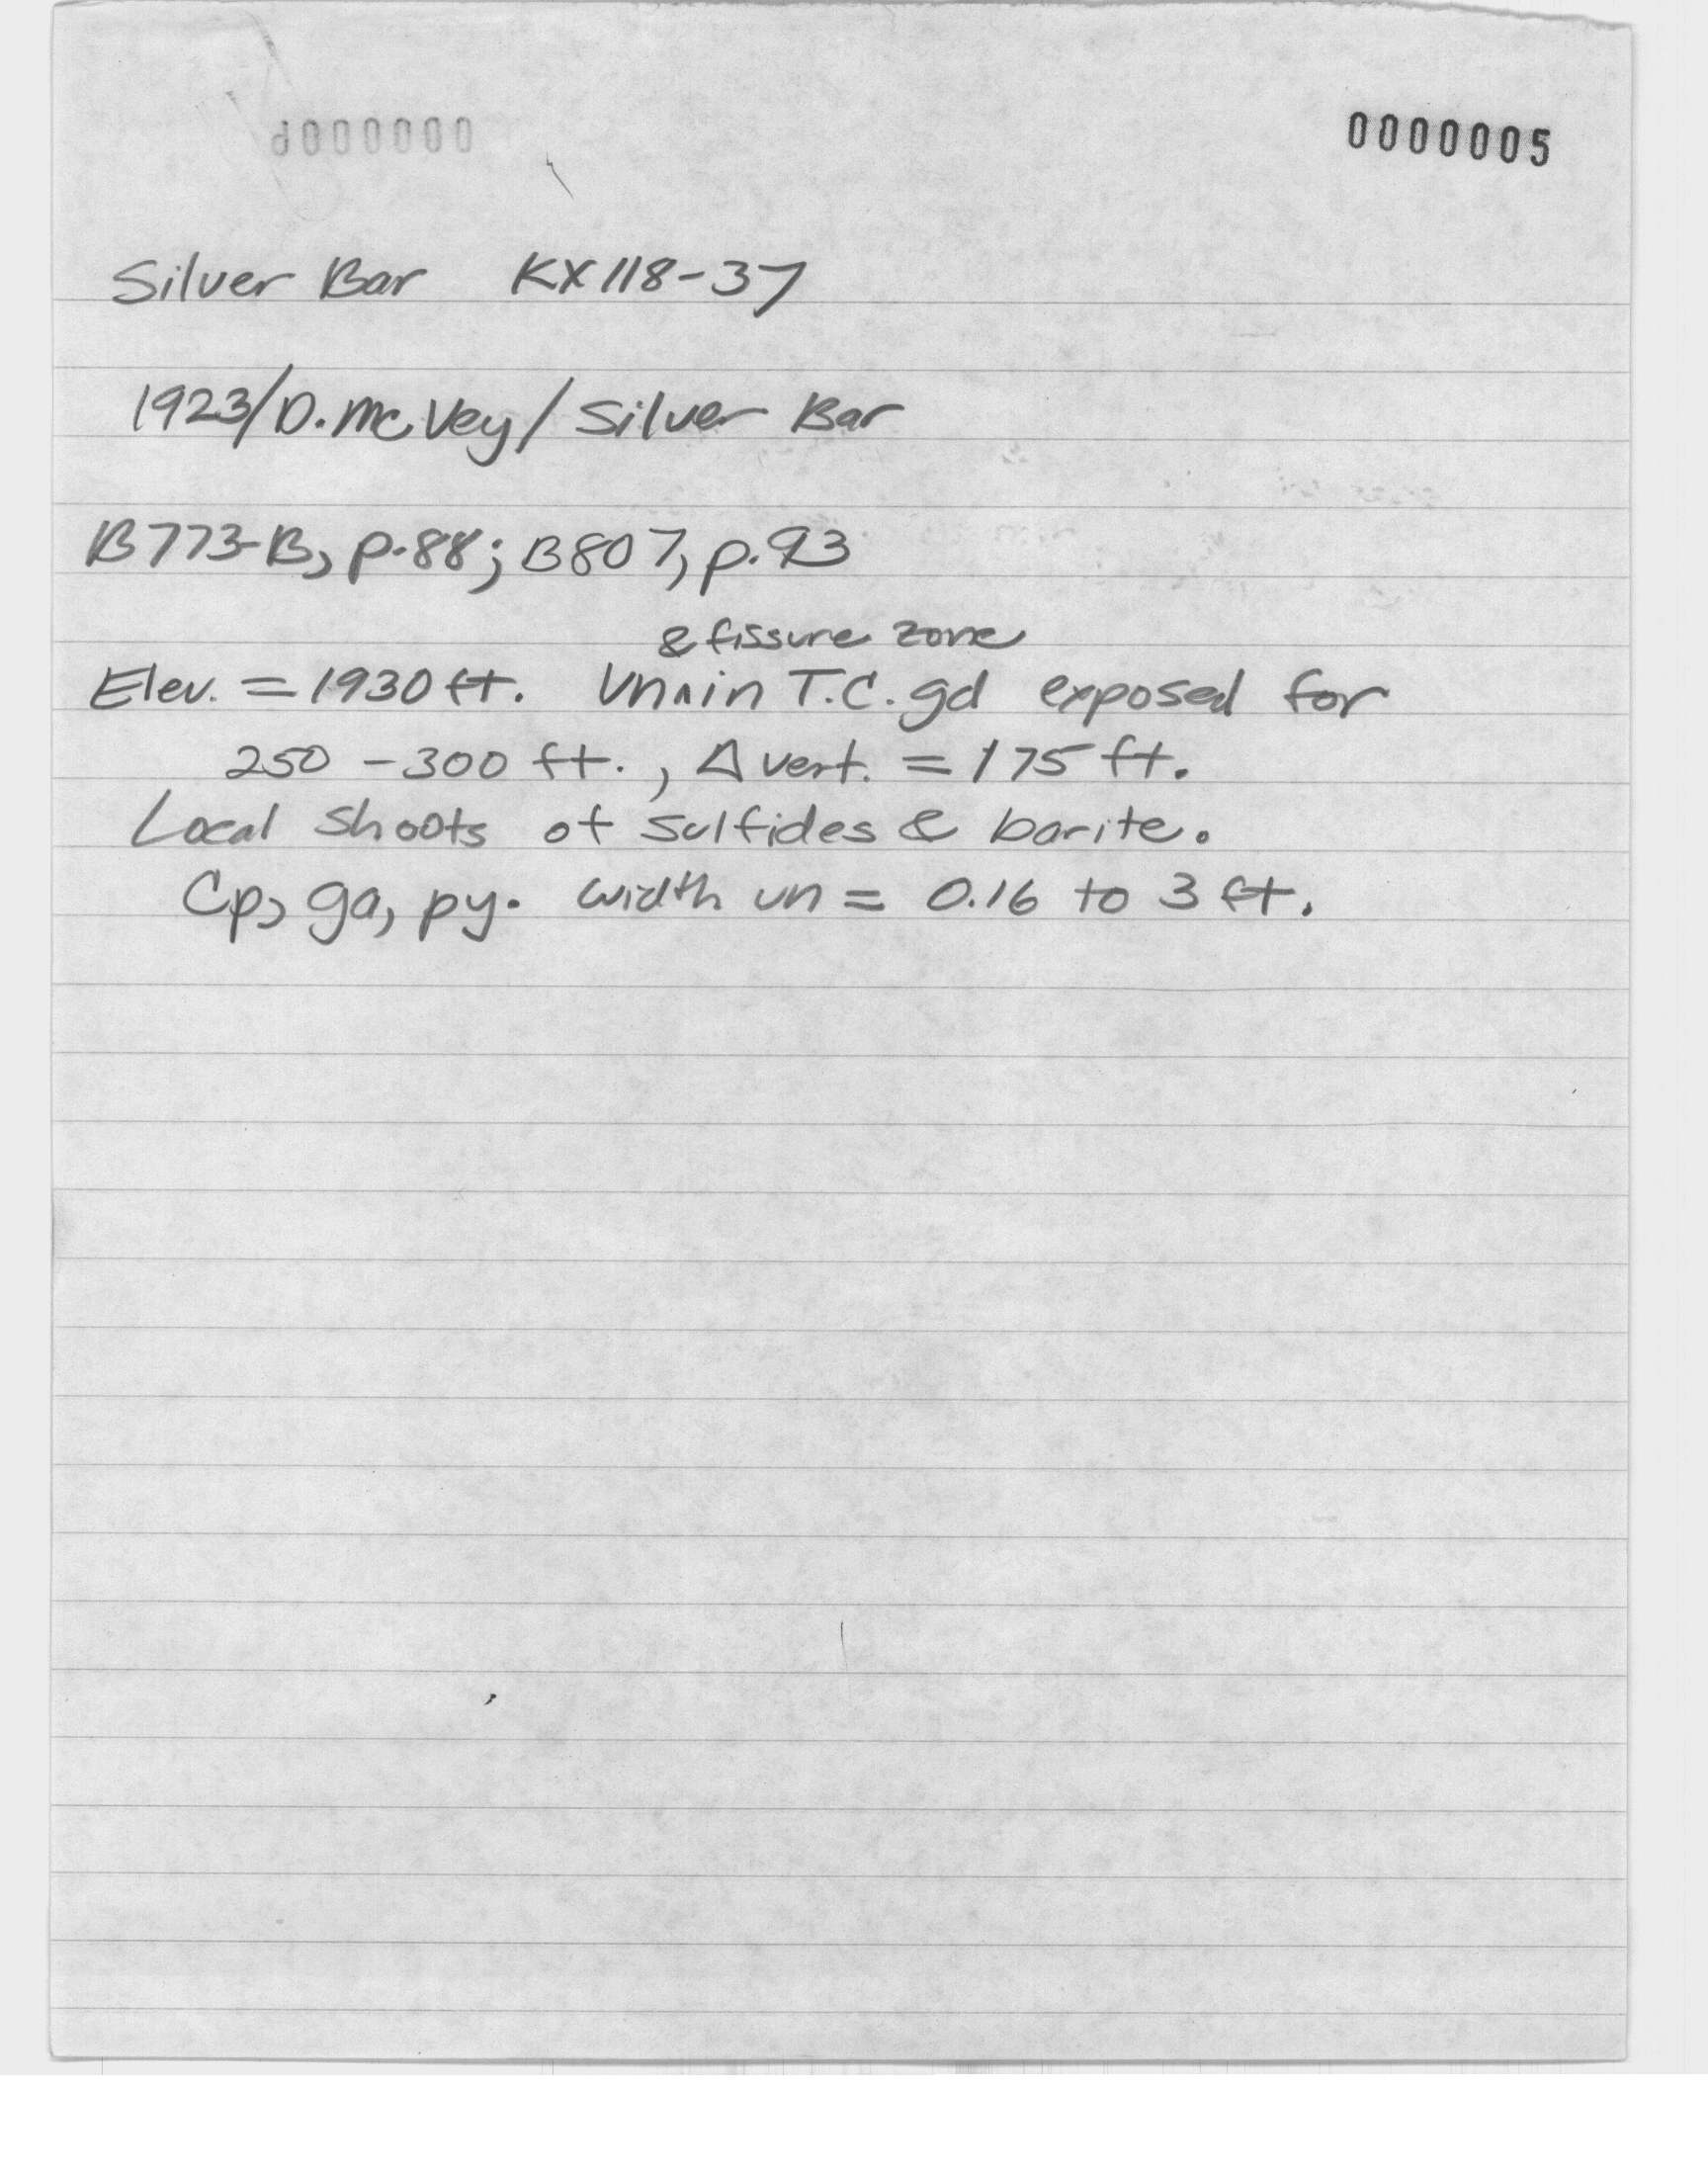 0000005
Silver Bar KX118-37
1923/D. McVey/Silver Bar
B773-B, p.88; B807, p.93
& fissure zone
Elev. = 1930 ft. Vn ^ in T.C. gd exposed for
250 - 300 ft., Δ vert. = 175 ft.
Local shoots of sulfides & barite.
Cp, ga, py. width vn = 0.16 to 3 ft.